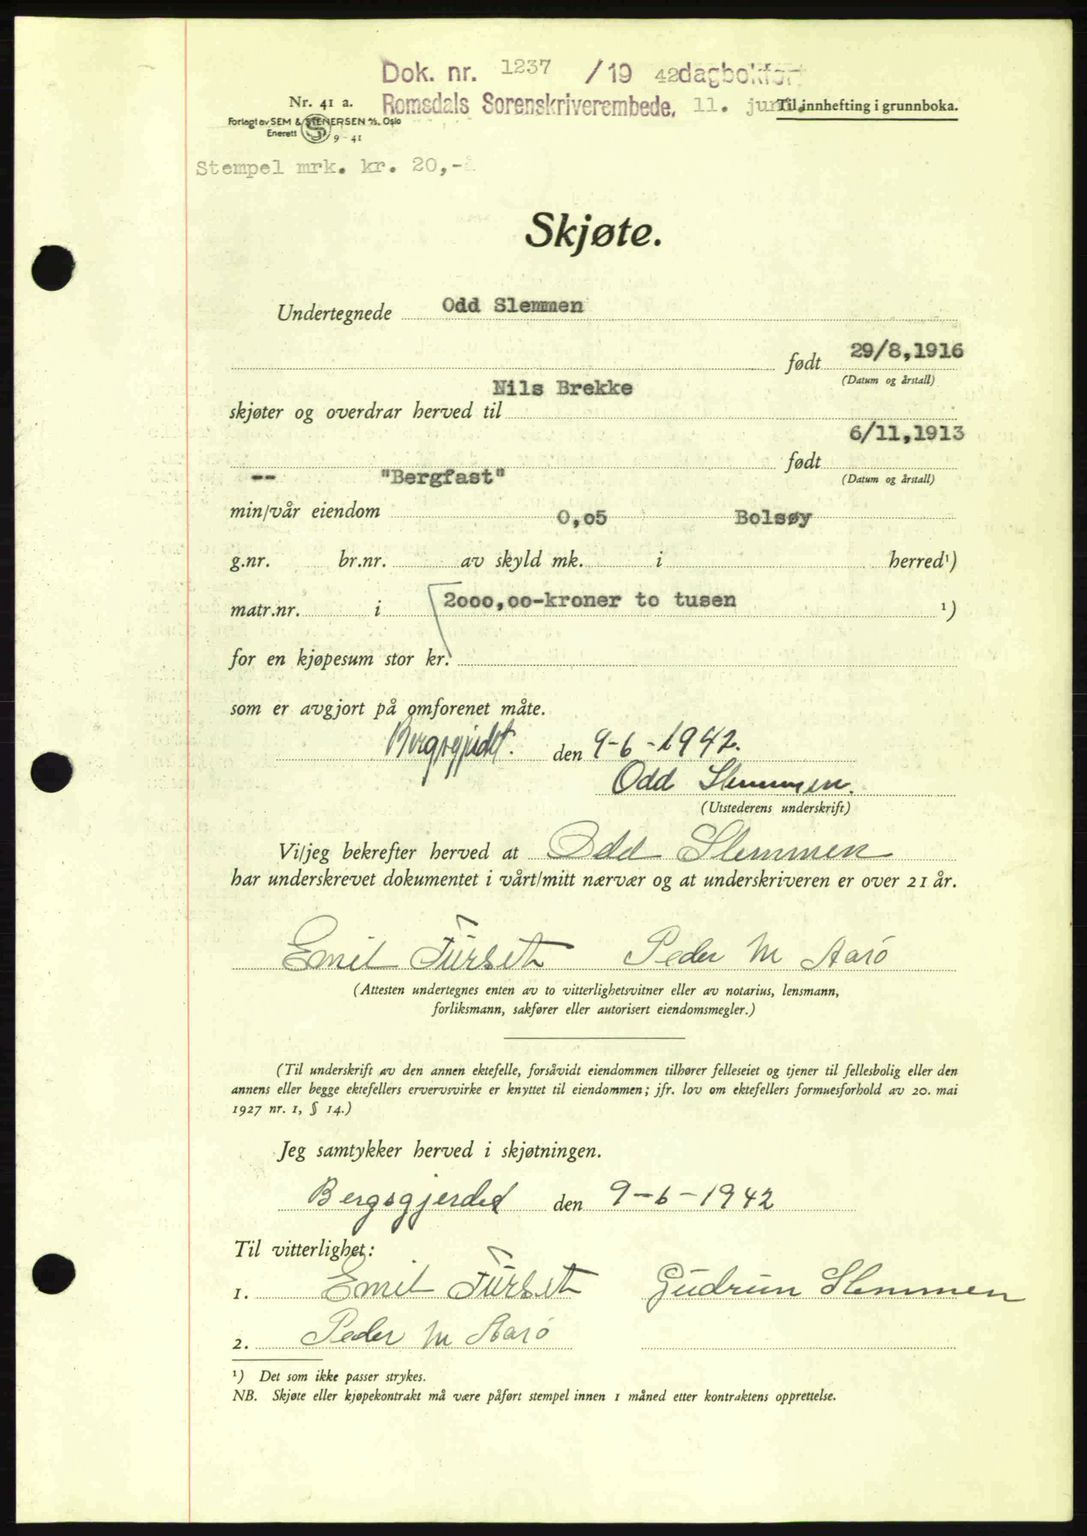 Dok. nr. 1237 /19 42 dagbokført
Nr. 41 a.
Romsdals Sorenskriverembede, 11. juni Til innhefting i grunnboka.
Forlagt av SEM & STENERSEN A/S, Oslo
Enerett S 9-41
Stempel mrk. kr. 20,-
Skjøte.
Undertegnede Odd Slemmen
født 29/8,1916
(Datum og årstall)
skjøter og overdrar herved til Nils Brekke
født 6/11,1913
(Datum og årstall)
min/vår eiendom -- "Bergfast"
g.nr. br.nr. av skyld mk. 0,05 i Bolsøy herred¹)
matr.nr. i ¹)
for en kjøpesum stor kr. 2000,00-kroner to tusen
som er avgjort på omforenet måte.
den 9-6-1942.
Odd Slemmen.
(Utstederens underskrift)
Vi/jeg bekrefter herved at Odd Slemmen
har underskrevet dokumentet i vårt/mitt nærvær og at underskriveren er over 21 år.
Emil Fürset Peder M Aarö
(Attesten undertegnes enten av to vitterlighetsvitner eller av notarius, lensmann,
forliksmann, sakfører eller autorisert eiendomsmegler.)
(Til underskrift av den annen ektefelle, forsåvidt eiendommen tilhører felleseiet og tjener til fellesbolig eller den
annens eller begge ektefellers ervervsvirke er knyttet til eiendommen; jfr. lov om ektefellers formuesforhold av 20. mai
1927 nr. 1, § 14.)
Jeg samtykker herved i skjøtningen.
Bergsgjerdet den 9-6-1942
Til vitterlighet:
1. Emil Fürset Gudrun Slemmen
2. Peder M Aarö
¹) Det som ikke passer strykes.
NB. Skjøte eller kjøpekontrakt må være påført stempel innen 1 måned etter kontraktens opprettelse.